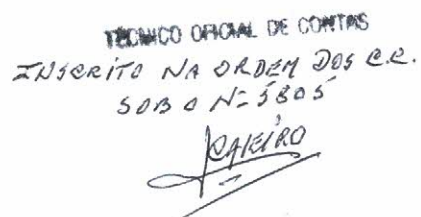 TÉCNICO OFICIAL DE CONTAS
INSCRITO NA ORDEM DOS C.C.
SOB O Nº 5805